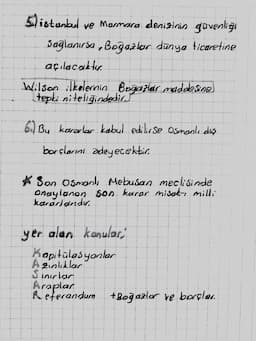 5) istanbul ve Marmara denizinin güvenliği
sağlanırsa, Boğazlar dünya ticaretine
açılacaktır.
Wilson ilkelerinin Boğazlar maddesine
tepki niteliğindedir.
6) Bu kararlar kabul edilirse osmanlı dış
borçlarını ödeyecektir.
* Son Osmanlı Mebusan meclisinde
onaylanan son karar misak-ı milli
kararlarıdır.
yer alan konular;
Kapitülasyonlar
Azınlıklar
Sınırlar
Araplar
Referandum +Boğazlar ve borçlar.